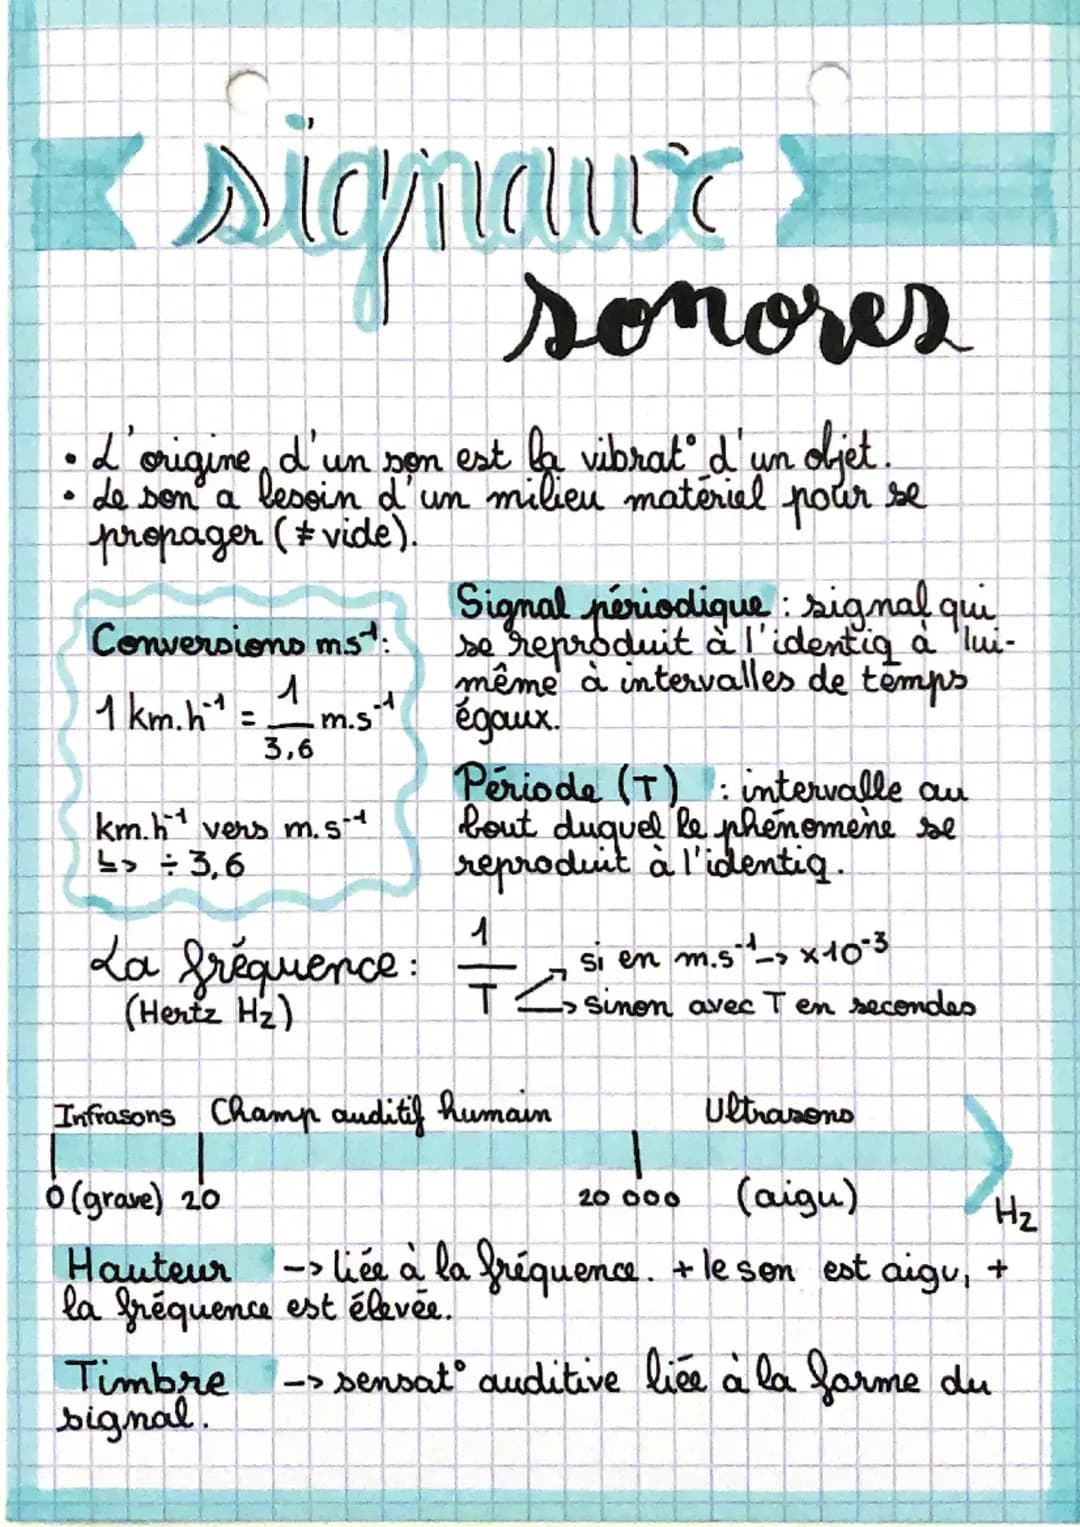 signaux
sonores
• L'origine d'un son est la vibrat° d'un objet.
• Le son a besoin d'un milieu matériel pour se
propager (≠ vide).
Conversions ms⁻¹:
1 km.h⁻¹ = 1/3,6 m.s⁻¹
km.h⁻¹ vers m.s⁻¹
↳> ÷ 3,6
Signal périodique : signal qui
se reproduit à l'identiq à lui-
même à intervalles de temps
égaux.
Période (T) : intervalle au
bout duquel le phénomène se
reproduit à l'identiq.
La fréquence : 1/T
(Hertz Hz)
si en m.s⁻¹ -> x10⁻³
sinon avec T en secondes
Infrasons Champ auditif humain Ultrasons
0 (grave) 20 20 000 (aigu) Hz
Hauteur -> liée à la fréquence. + le son est aigu, +
la fréquence est élevée.
Timbre -> sensat° auditive liée à la forme du
signal.